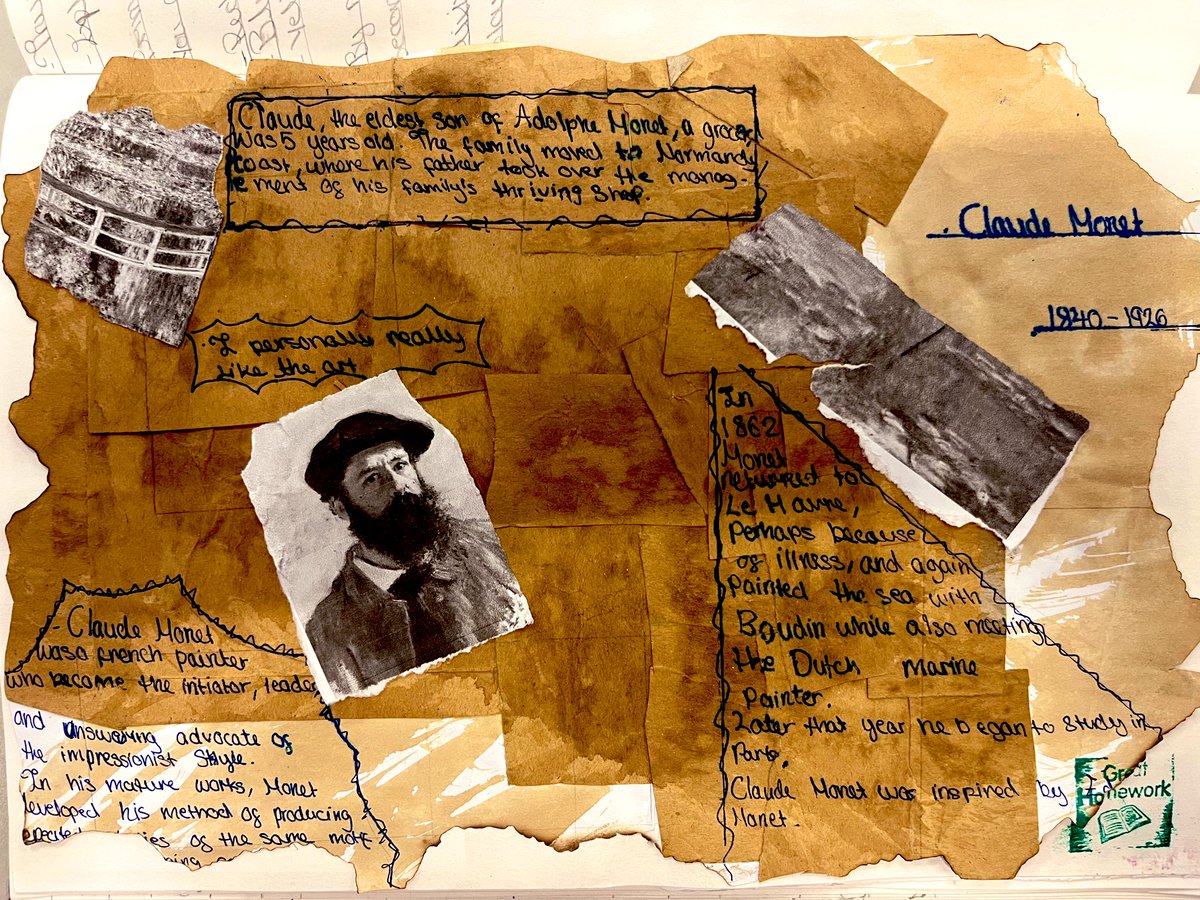 Claude, the eldest son of Adolphe Monet, a grocer,
was 5 years old. The family moved to Normandy
coast, where his father took over the manag-
ement of his family's thriving shop.
Claude Monet
1840-1926
I personally really
like the art
In
1862
Monet
returned to
Le Havre,
Perhaps because
of illness, and again
Painted the sea with
Boudin while also meeting
the Dutch marine
Painter.
Later that year he began to study in
Paris.
Claude Monet was inspired by
Manet.
- Claude Monet
was a french painter
who became the initiator, leader,
and unswering advocate of
the impressionist style.
In his mature works, Monet
developed his method of producing
of the same motif
Great
Homework